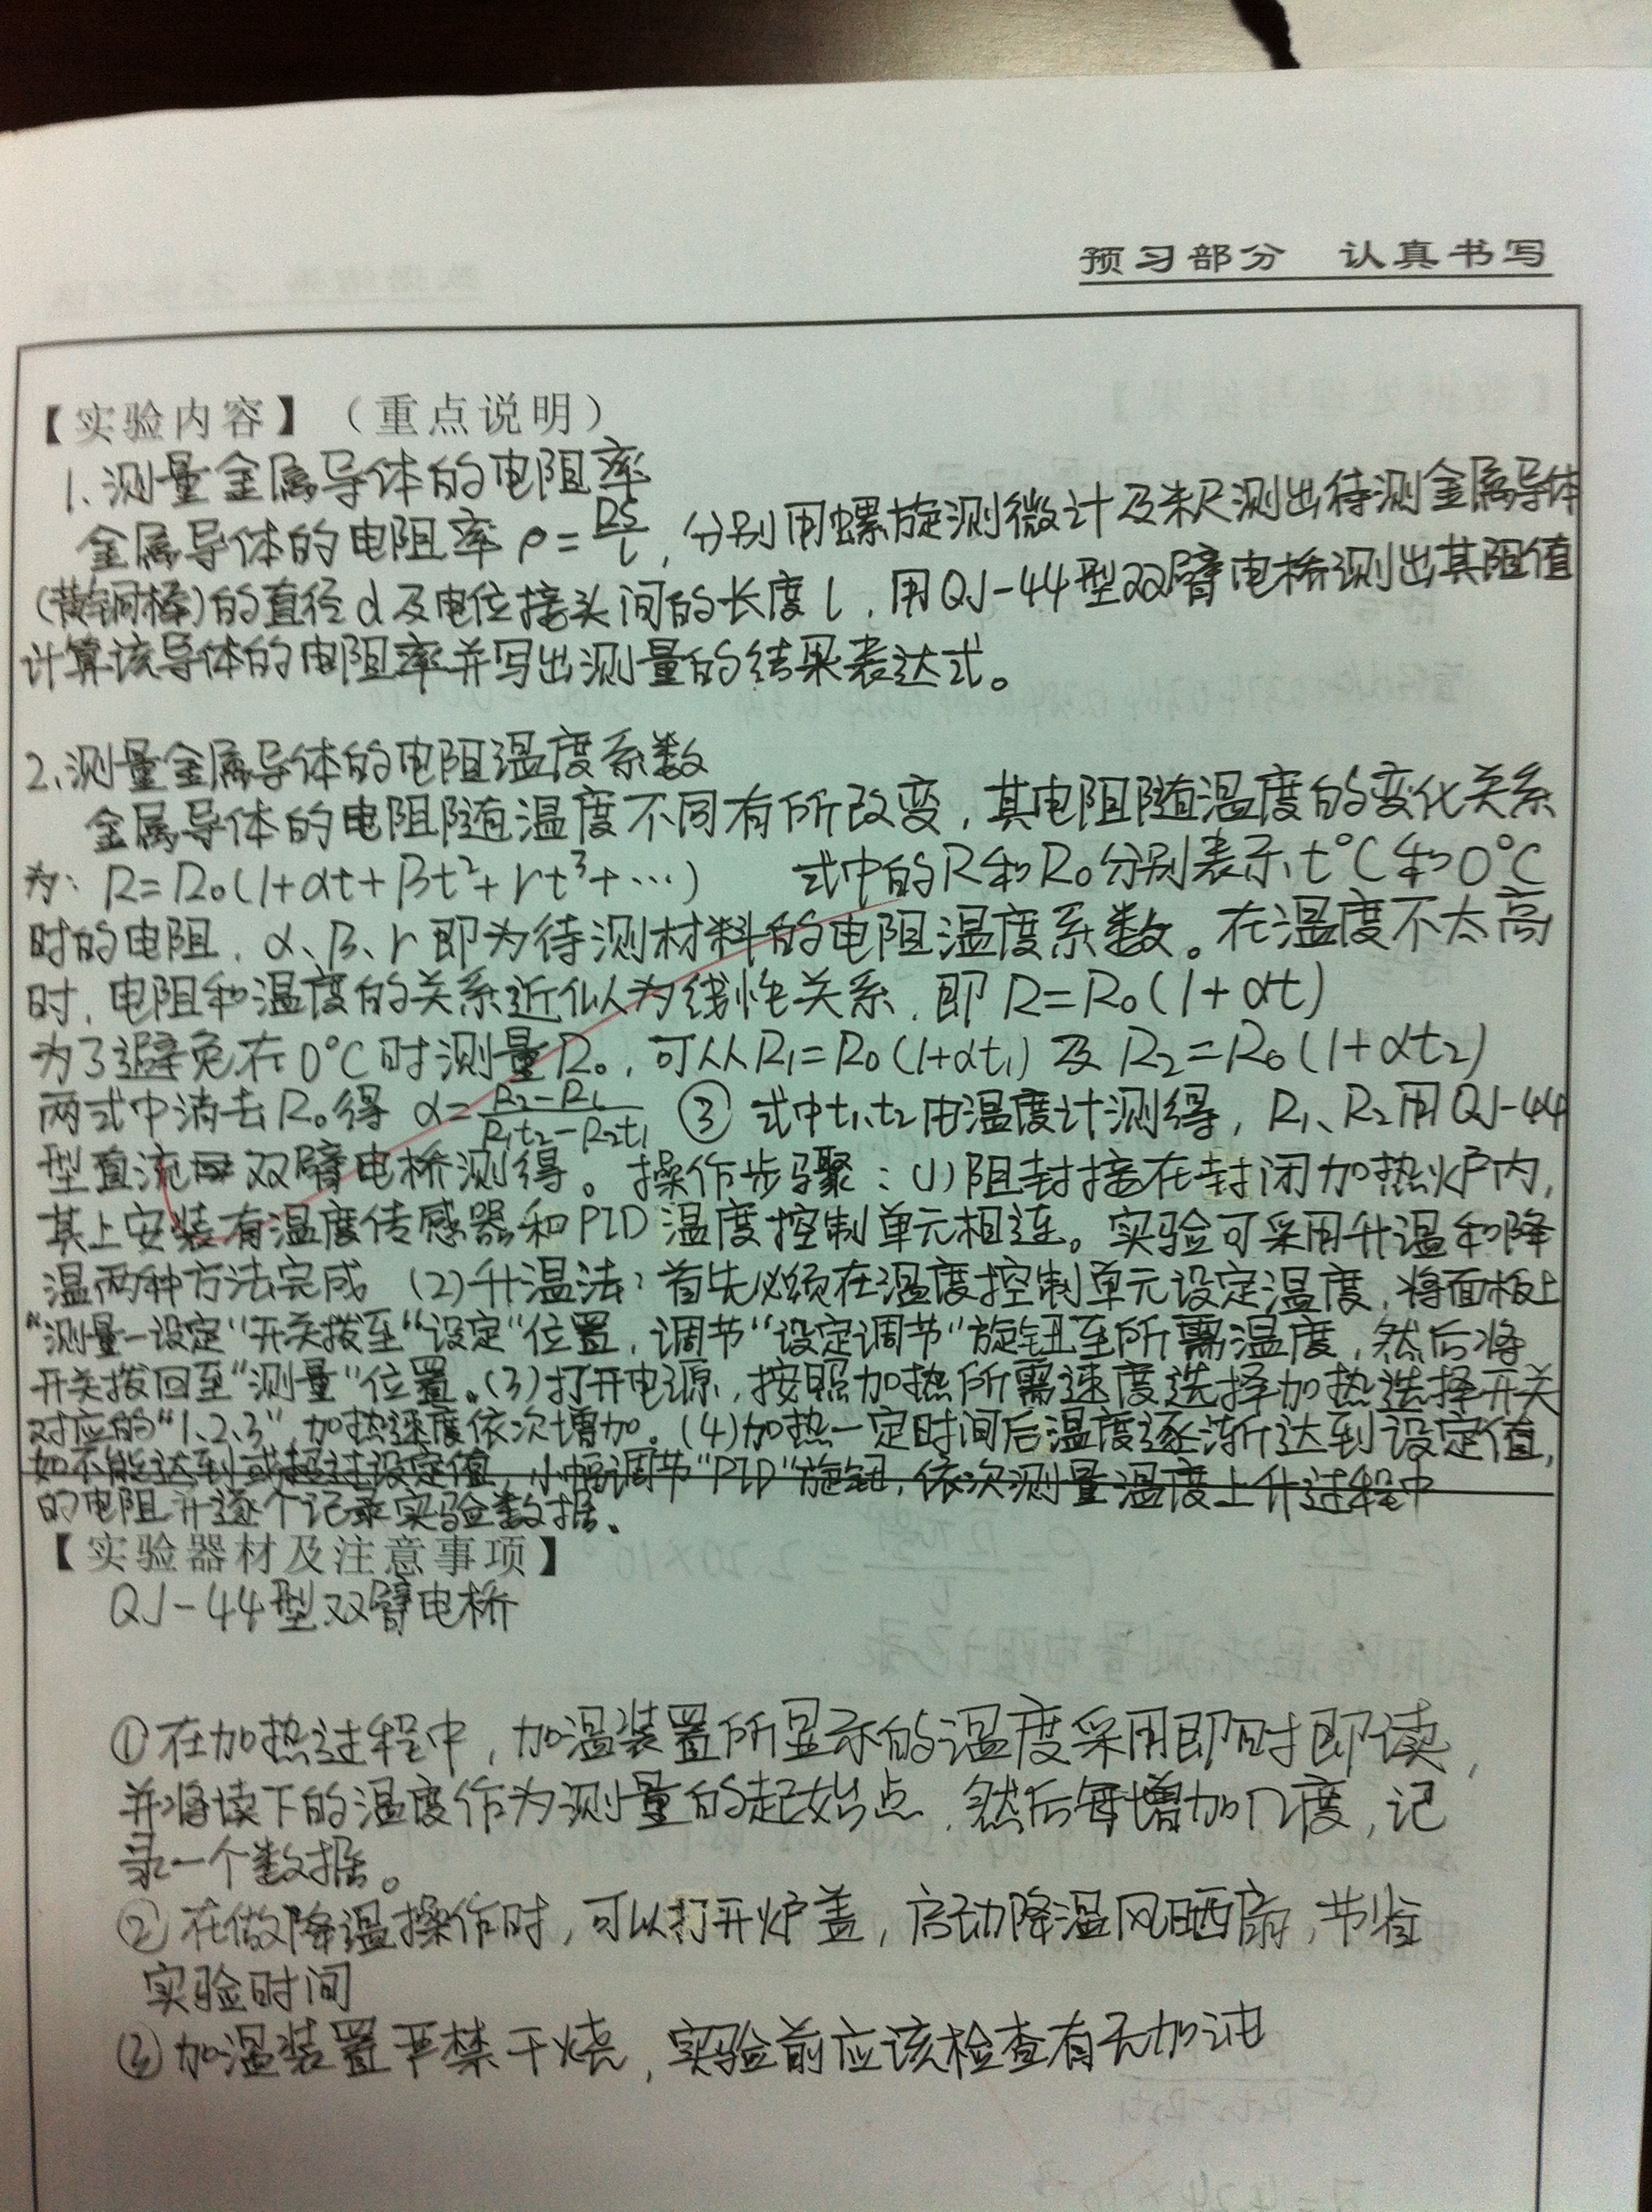 预习部分 认真书写
【实验内容】（重点说明）
1.测量金属导体的电阻率
金属导体的电阻率 ρ=RS/l，分别用螺旋测微计及米尺测出待测金属导体
(黄铜棒)的直径d及电位接头间的长度l，用QJ-44型双臂电桥测出其阻值
计算该导体的电阻率并写出测量的结果表达式。
2.测量金属导体的电阻温度系数
金属导体的电阻随温度不同有所改变，其电阻随温度的变化关系
为：R=R₀(1+αt+βt²+γt³+…) 式中的R和R₀分别表示t°C和0°C
时的电阻，α、β、γ即为待测材料的电阻温度系数。在温度不太高
时，电阻和温度的关系近似为线性关系，即R=R₀(1+αt)
为了避免在0°C时测量R₀，可从R₁=R₀(1+αt₁)及R₂=R₀(1+αt₂)
两式中消去R₀得 α=(R₂-R₁)/(R₁t₂-R₂t₁) ③ 式中t₁、t₂由温度计测得，R₁、R₂用QJ-44
型直流双臂电桥测得。操作步骤：(1)阻封接在封闭加热炉内，
其上安装有温度传感器和PID温度控制单元相连。实验可采用升温和降
温两种方法完成 (2)升温法：首先必须在温度控制单元设定温度，将面板上
“测量—设定”开关拨至“设定”位置，调节“设定调节”旋钮至所需温度，然后将
开关拨回至“测量”位置。(3)打开电源，按照加热所需速度选择加热选择开关
对应的“1、2、3”，加热速度依次增加。(4)加热一定时间后温度逐渐达到设定值，
如不能达到或超过设定值，小幅调节“PID”旋钮，依次测量温度上升过程中
的电阻并逐个记录实验数据。
【实验器材及注意事项】
QJ-44型双臂电桥
①在加热过程中，加温装置所显示的温度采用即时即读，
并将读下的温度作为测量的起始点，然后每增加几度，记
录一个数据。
②在做降温操作时，可以打开炉盖，启动降温风晒扇，节省
实验时间
③加温装置严禁干烧，实验前应该检查有无加油